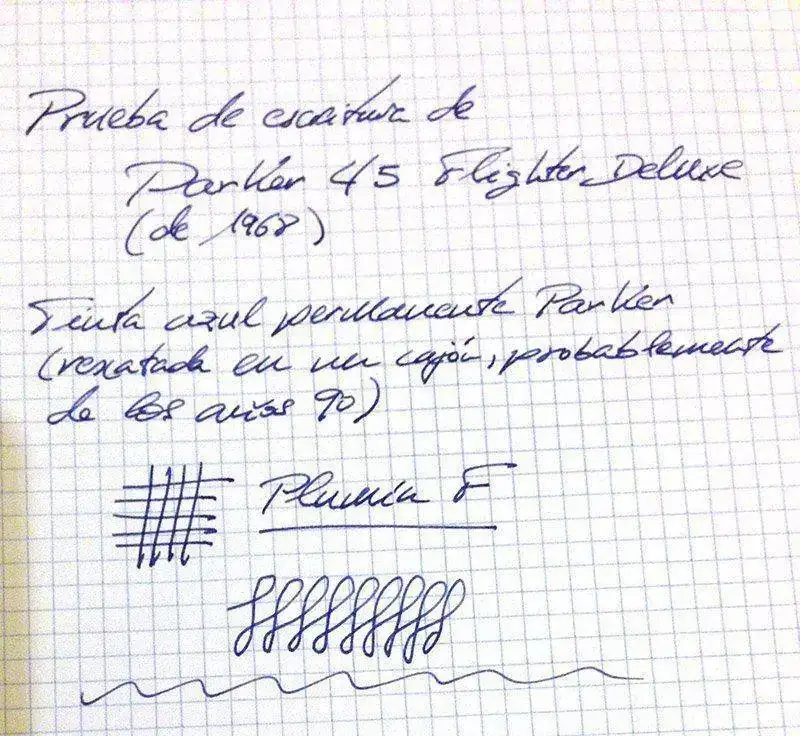 Prueba de escritura de
Parker 45 Flighter Deluxe
(de 1968)
Tinta azul permanente Parker
(rescatada en un cajón, probablemente
de los años 90)
Plumín F